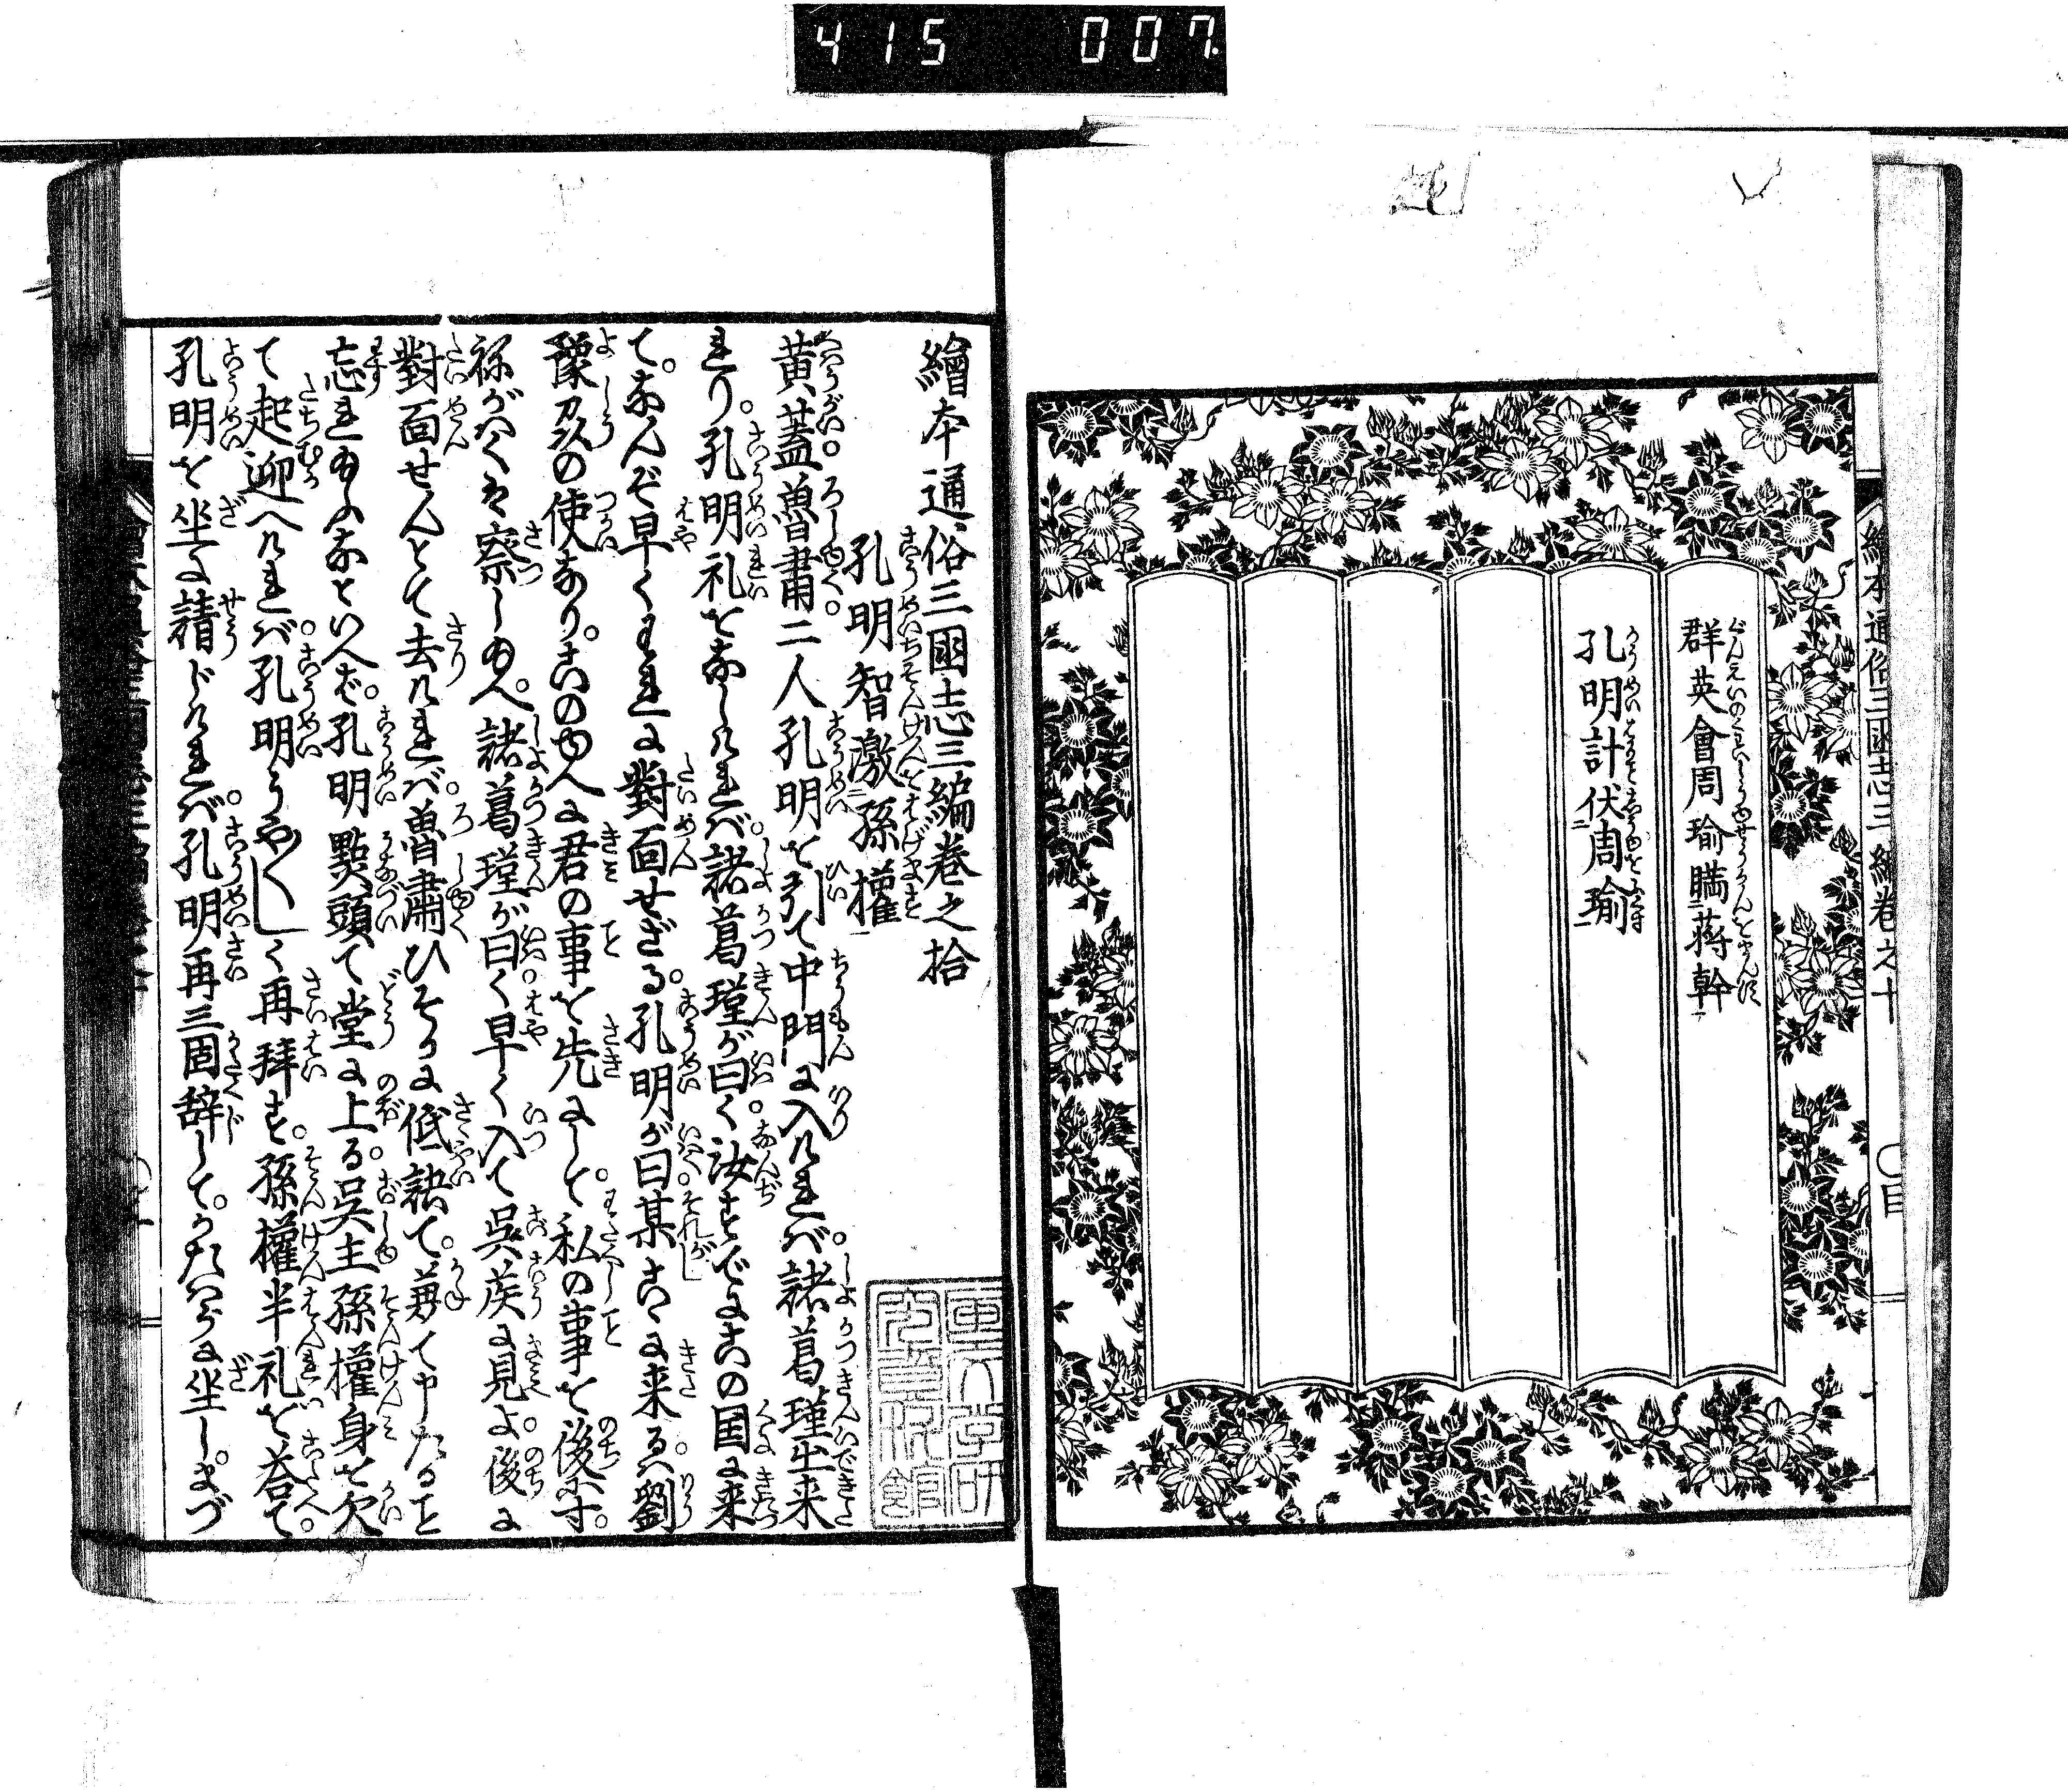 415 007
繪本通俗三國志三編卷之十 〇目
群英會周瑜瞞二蒋幹一
孔明計伏二周瑜一
繪本通俗三國志三編卷之拾
孔明智激二孫權一
黄蓋。魯肅。二人孔明を引て中門に入ければ。諸葛瑾出来
れり。孔明礼をなしければ。諸葛瑾が曰く。汝すでにこの国に来
て。なんぞ早くわれに對面せざる。孔明が曰某こゝに来るハ。劉
豫刕の使なり。この故へに君の事を先にして。私の事を後にす。
祢がハくは察し給へ。諸葛瑾が曰く。早く入て呉侯に見よ。後に
對面せんとて去ければ。魯肅ひそかに低訣て。前に申たること
忘れ給ふなといへば。孔明點頭て堂に上る。呉主孫權身を欠
て起迎へければ。孔明うや〱しく再拜す。孫權半礼を荅て。
孔明を坐に請じければ。孔明再三固辞して。かたハらに坐し。まづ